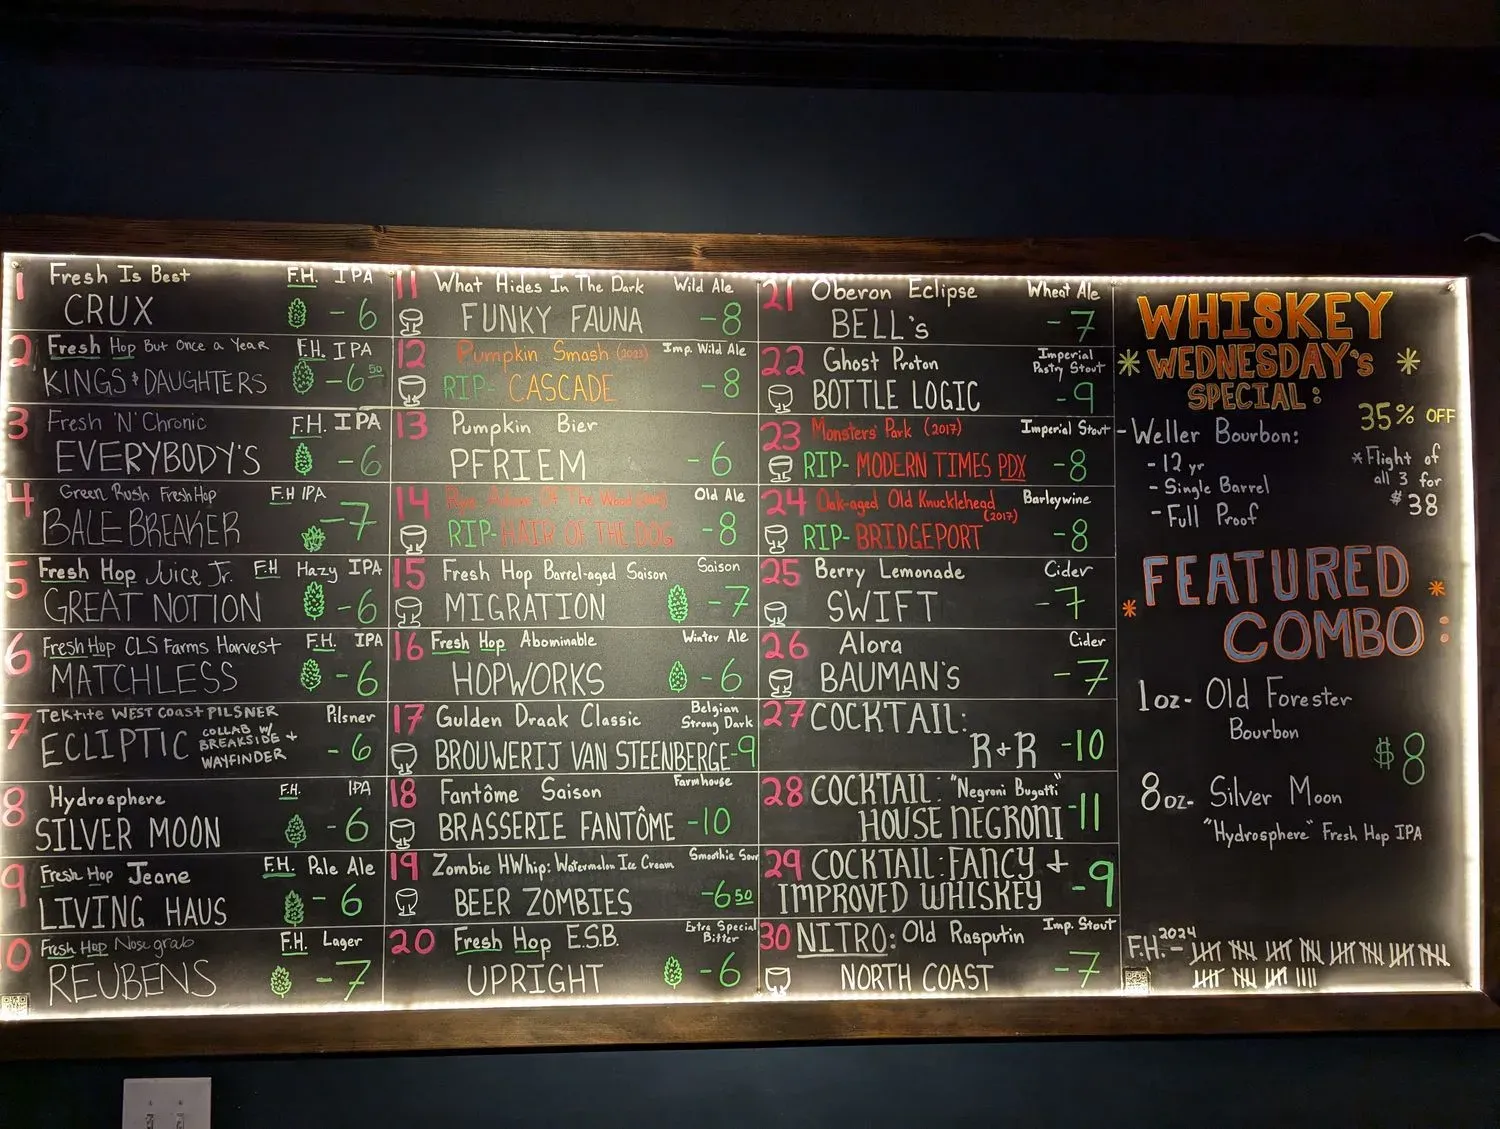 1 Fresh Is Best F.H. IPA
CRUX - 6
2 Fresh Hop But Once a Year F.H. IPA
KINGS & DAUGHTERS - 6 50
3 Fresh 'N' Chronic F.H. IPA
EVERYBODY'S - 6
4 Green Rush Fresh Hop F.H IPA
BALE BREAKER - 7
5 Fresh Hop Juice Jr. FH Hazy IPA
GREAT NOTION - 6
6 Fresh Hop CLS Farms Harvest F.H. IPA
MATCHLESS - 6
7 Tektite WEST COAST PILSNER Pilsner
ECLIPTIC COLLAB W/ BREAKSIDE + WAYFINDER - 6
8 Hydrosphere F.H. IPA
SILVER MOON - 6
9 Fresh Hop Jeane F.H. Pale Ale
LIVING HAUS - 6
10 Fresh Hop Nose grab F.H. Lager
REUBENS - 7
11 What Hides In The Dark Wild Ale
FUNKY FAUNA - 8
12 Pumpkin Smash (2023) Imp. Wild Ale
RIP- CASCADE - 8
13 Pumpkin Bier
PFRIEM - 6
14 Adam Of The Wood Old Ale
RIP- HAIR OF THE DOG - 8
15 Fresh Hop Barrel-aged Saison Saison
MIGRATION - 7
16 Fresh Hop Abominable Winter Ale
HOPWORKS - 6
17 Gulden Draak Classic Belgian Strong Dark
BROUWERIJ VAN STEENBERGE - 9
18 Fantôme Saison Farmhouse
BRASSERIE FANTÔME - 10
19 Zombie HWhip: Watermelon Ice Cream Smoothie Sour
BEER ZOMBIES - 6 50
20 Fresh Hop E.S.B. Extra Special Bitter
UPRIGHT - 6
21 Oberon Eclipse Wheat Ale
BELL's - 7
22 Ghost Proton Imperial Pastry Stout
BOTTLE LOGIC - 9
23 Monsters' Park (2017) Imperial Stout
RIP- MODERN TIMES PDX - 8
24 Oak-aged Old Knucklehead (2017) Barleywine
RIP- BRIDGEPORT - 8
25 Berry Lemonade Cider
SWIFT - 7
26 Alora Cider
BAUMAN'S - 7
27 COCKTAIL:
R+R - 10
28 COCKTAIL: "Negroni Bugatti"
HOUSE NEGRONI - 11
29 COCKTAIL: FANCY +
IMPROVED WHISKEY - 9
30 NITRO: Old Rasputin Imp. Stout
NORTH COAST - 7
WHISKEY
* WEDNESDAY's *
SPECIAL:
35% OFF
- Weller Bourbon:
- 12 yr
- Single Barrel
- Full Proof
* Flight of
all 3 for
$38
FEATURED
* COMBO: *
1oz- Old Forester
Bourbon
$8
8oz- Silver Moon
"Hydrosphere" Fresh Hop IPA
F.H. 2024 -